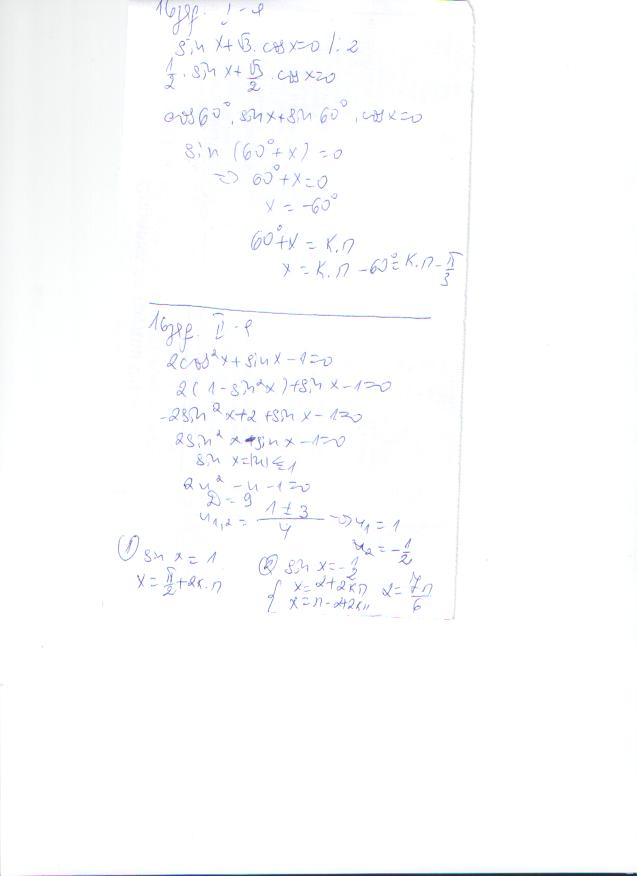 16 зад. I-я
sin x+√3.cos x=0 /:2
1/2 . sin x + √3/2 . cos x=0
cos 60°. sin x + sin 60°. cos x=0
sin (60°+x) =0
=> 60°+x=0
x = -60°
60°+x = K.π
x = K.π - 60° = K.π - π/3
16 зад. II-я
2cos²x + sin x - 1=0
2(1-sin²x)+sin x - 1=0
-2sin²x+2 +sin x - 1=0
2sin²x - sin x - 1=0
sin x=|u|≤1
2u² - u - 1=0
D = 9
u1,2 = (1 ± 3)/4 => u1 = 1
u2 = -1/2
① sin x = 1
x = π/2 + 2K.π
② sin x = -1/2
{ x = α+2Kπ α = 7π/6
x = π-α+2Kπ